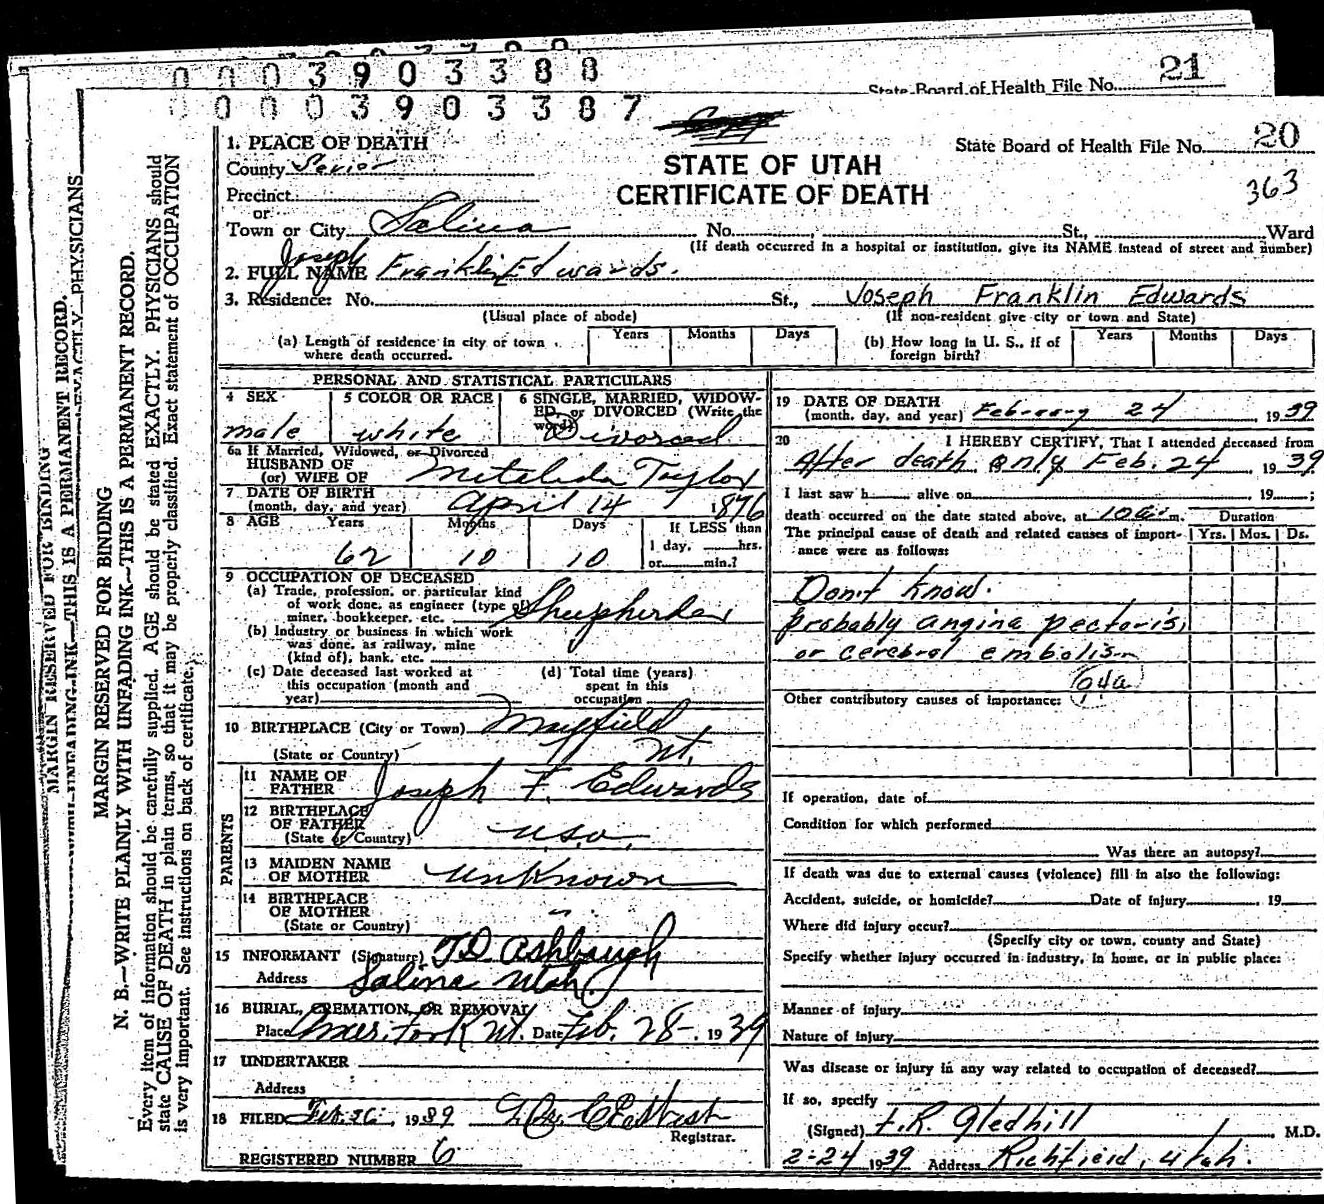 0003903388
State Board of Health File No. 21
0003903387
State Board of Health File No. 20
363
1. PLACE OF DEATH
County Sevier
STATE OF UTAH
CERTIFICATE OF DEATH
Precinct
or
Town or City Salina No. St., Ward
(If death occurred in a hospital or institution, give its NAME instead of street and number)
2. FULL NAME Joseph Franklin Edwards.
3. Residence: No. St., Joseph Franklin Edwards
(Usual place of abode) (If non-resident give city or town and State)
(a) Length of residence in city or town where death occurred. Years Months Days
(b) How long in U. S., if of foreign birth? Years Months Days
PERSONAL AND STATISTICAL PARTICULARS
4 SEX male
5 COLOR OR RACE white
6 SINGLE, MARRIED, WIDOWED, or DIVORCED (Write the word) Divorced
6a If Married, Widowed, or Divorced
HUSBAND OF
(or) WIFE OF Taylor
7 DATE OF BIRTH
(month, day, and year) April 14 1876
8 AGE Years 62 Months 10 Days 10
If LESS than
1 day, hrs.
or min.?
9 OCCUPATION OF DECEASED
(a) Trade, profession, or particular kind
of work done, as engineer (type of)
miner, bookkeeper, etc. Sheepherder
(b) Industry or business in which work
was done, as railway, mine
(kind of), bank, etc.
(c) Date deceased last worked at
this occupation (month and
year)
(d) Total time (years)
spent in this
occupation
10 BIRTHPLACE (City or Town) Mayfield
(State or Country) Ut.
PARENTS
11 NAME OF
FATHER Joseph F. Edwards
12 BIRTHPLACE
OF FATHER
(State or Country) U.S.A.
13 MAIDEN NAME
OF MOTHER Unknown
14 BIRTHPLACE
OF MOTHER "
(State or Country)
15 INFORMANT (Signature) T.D. Ashbaugh
Address Salina Utah.
16 BURIAL, CREMATION, OR REMOVAL
Place Amer. Fork Ut. Date Feb. 28 - 1939
17 UNDERTAKER
Address
18 FILED Feb. 26 1939
Registrar.
REGISTERED NUMBER 6
19 DATE OF DEATH
(month, day, and year) February 24 1939
20 I HEREBY CERTIFY, That I attended deceased from
After death only Feb. 24, 1939
I last saw h alive on 19 ;
death occurred on the date stated above, at 10 a.m.
Duration
The principal cause of death and related causes of importance were as follows:
Yrs. Mos. Ds.
Don't know.
probably angina pectoris,
or cerebral embolism
94a
Other contributory causes of importance:
If operation, date of
Condition for which performed
Was there an autopsy?
If death was due to external causes (violence) fill in also the following:
Accident, suicide, or homicide? Date of injury 19
Where did injury occur?
(Specify city or town, county and State)
Specify whether injury occurred in industry, in home, or in public place:
Manner of injury
Nature of injury
Was disease or injury in any way related to occupation of deceased?
If so, specify
(Signed) F.R. Gledhill, M.D.
2-24 1939 Address Richfield, Utah.
MARGIN RESERVED FOR BINDING
UNFADING INK—THIS IS A PERMANENT RECORD.
EXACTLY. PHYSICIANS
MARGIN RESERVED FOR BINDING
N. B.—WRITE PLAINLY WITH UNFADING INK—THIS IS A PERMANENT RECORD.
Every item of information should be carefully supplied. AGE should be stated EXACTLY. PHYSICIANS should
state CAUSE OF DEATH in plain terms, so that it may be properly classified. Exact statement of OCCUPATION
is very important. See instructions on back of certificate.